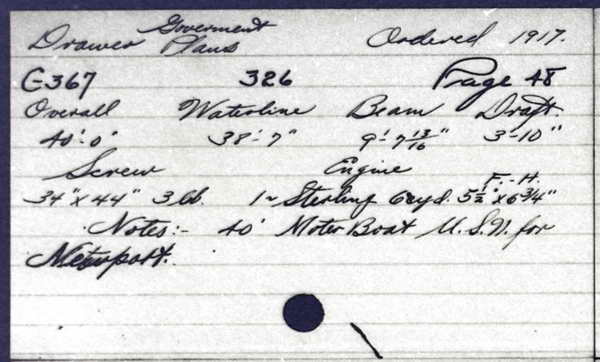 Drawer Goverment Plans Ordered 1917.
G367 326 Page 48
Overall Waterline Beam Draft.
40'-0" 38'-7" 9'-7 13/16" 3'-10"
Screw Engine F.-H.
34" x 44" 3 bl. 1~ Sterling 6 cyd. 5 1/2" x 6 3/4"
Notes:- 40' Motor Boat U.S.N. for
Newport.